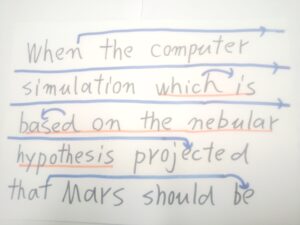 When the computer
simulation which is
based on the nebular
hypothesis projected
that Mars should be